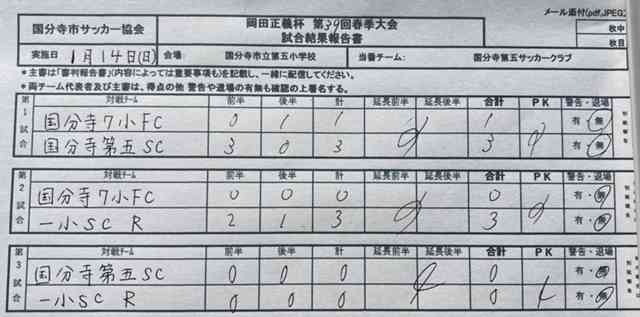 メール添付(pdf,JPEG)
国分寺市サッカー協会 岡田正義杯 第39回春季大会 枚中
試合結果報告書 枚目
実施日 1月14日(日) 会場: 国分寺市立第五小学校 当番チーム: 国分寺第五サッカークラブ
*主審は「審判報告書」(内容によっては重要事項も)を記載し、一緒に配信してください。
*両チーム代表者及び主審は、得点の他 警告や退場の有無も確認の上署名する。
第1試合 対戦チーム 前半 後半 計 延長前半 延長後半 合計 PK 警告・退場
国分寺7小FC 0 1 1 1 有・無
国分寺第五SC 3 0 3 3 有・無
第2試合 対戦チーム 前半 後半 計 延長前半 延長後半 合計 PK 警告・退場
国分寺7小FC 0 0 0 0 有・無
一小SC R 2 1 3 3 有・無
第3試合 対戦チーム 前半 後半 計 延長前半 延長後半 合計 PK 警告・退場
国分寺第五SC 0 0 0 0 有・無
一小SC R 0 0 0 0 有・無